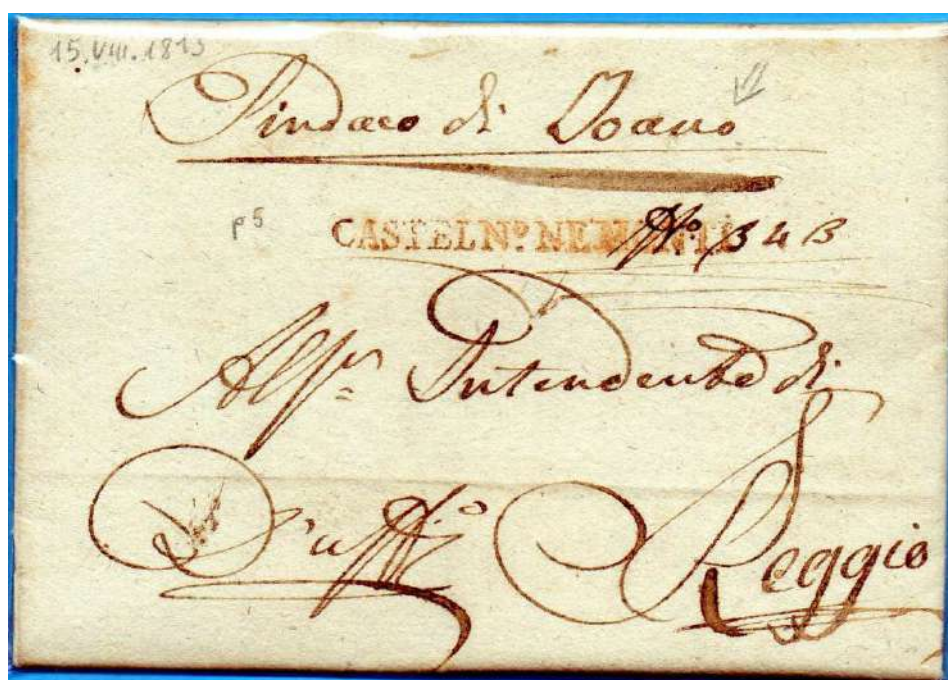 15.VIII.1815
Sindaco di Toano
p5
CASTELN.º NE MONTI
N.º 343
Al Sig.r Intendente di
D'uff.º Reggio